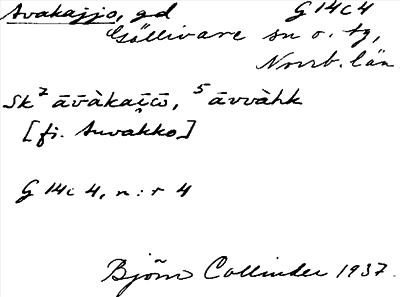 Avakajjo, gd G 14 c 4
Gällivare sn o. tg,
Norrb. län
Sk² āv̄àkaı̄ω̄, ⁵ āvvàhk
[fi. Auvakko]
G 14 c 4, n:r 4
Björn Collinder 1937.